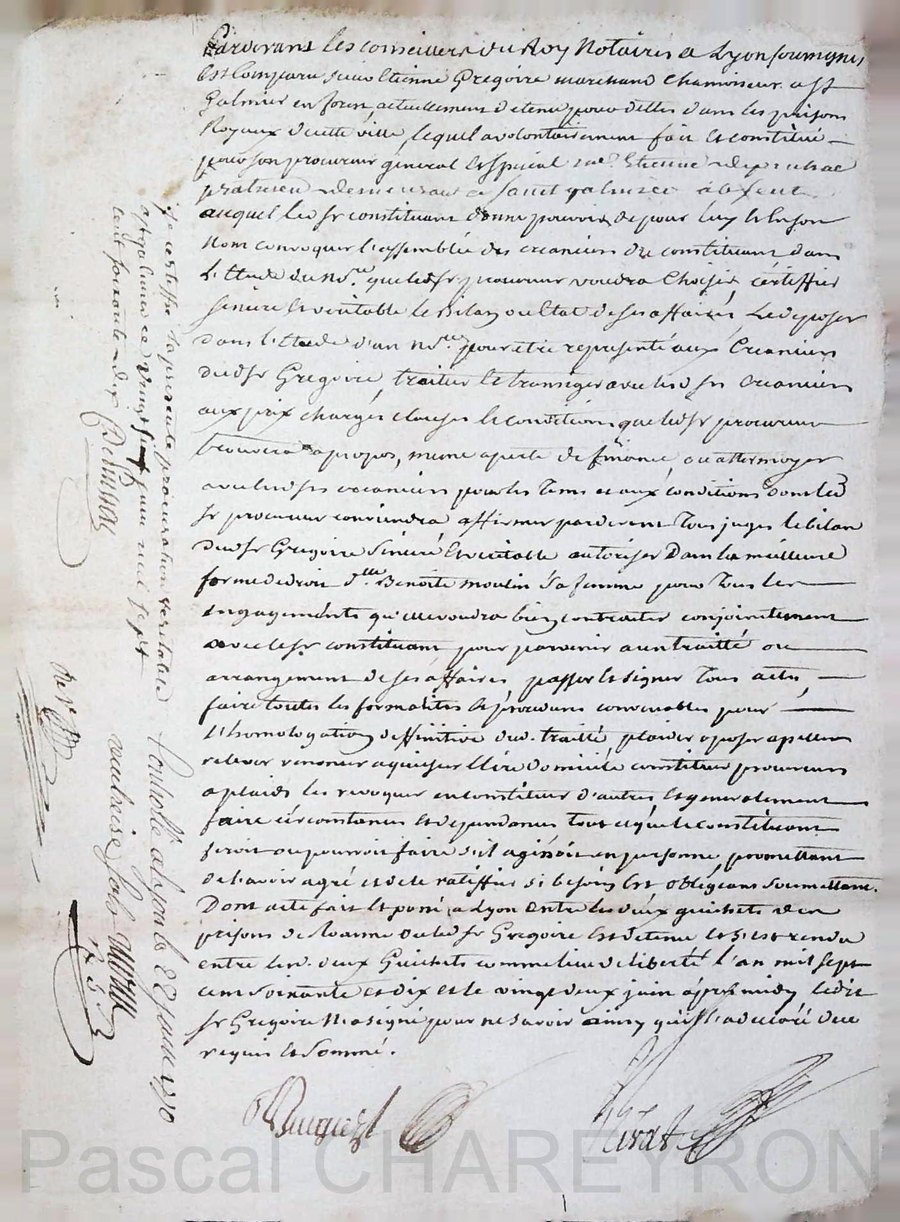 Pardevant les conseillers du Roy Notaires a Lyon soussignés
Est Comparu sieur Etienne Gregoire marchand chamoiseur a St
Galmier en forest actuellement detenu pour dettes dans les prisons
Royaux de cette ville, lequel a volontairement fait et constitué
pour son procureur general et special me Etienne
demeurant a saint galmier absent
auquel led sr constituant donne pouvoir de pour luy et en son
Nom convoquer l'assemblée des creanciers du constituant dans
L'Etude du Nore que led sr procureur voudra choisir, certiffier
sincere et veritable le Bilan ou Etat de ses affaires, Le deposer
dans l'Etude d'un Nore pour etre representé aux Creanciers
dud sr Gregoire, traiter et transiger avec lesd srs creanciers
aux prix charges clauses et conditions que led sr procureur
trouvera apropos, meme a perte de finance, ou attermoyer
avec lesd srs creanciers pour les tems et aux conditions dont led
sr procureur conviendra affirmer pardevant tous juges le bilan
dud sr Gregoire sincere et veritable autoriser Dans la meilleure
forme de droit dlle Benoite moulin sa femme pour tous les
engagements qu'elle voudra bien contracter conjointement
avec led sr constituant pour parvenir au traitté ou
arrangement de ses affaires passer et signer tous actes,
faire toutes les formalités et procedures convenables pour
L'homologation deffinitive dud. traitté, plaider oposer apeller
relever renoncer aquiescer Elire domicile constituer procureurs
a plaids les revoquer en constituer d'autres et generalement
faire circonstances et dependances tout ce que le constituant
feroit ou pourroit faire s'il agissoit en personne, promettant
de l'avoir agré et de le ratiffier si besoin Est obligeant soumettant.
Dont acte fait et passé, a Lyon entre les deux guichets des
prisons de Roanne ou led sr Gregoire Est detenu et s'est rendu
entre lesd. deux Guichets comme lieu de liberté L'an mil sept
cent soixante et dix et le vingt deux juin après midy ledit
sr Gregoire N'a signé pour ne savoir ainsy qu'il l'a declaré de ce
requis et sommé.
Je certiffie la presente procuration veritable
a St galmier ce vingt sept juin mil sept
cent soixante dix
Controllé a Lyon le 22 juin 1770